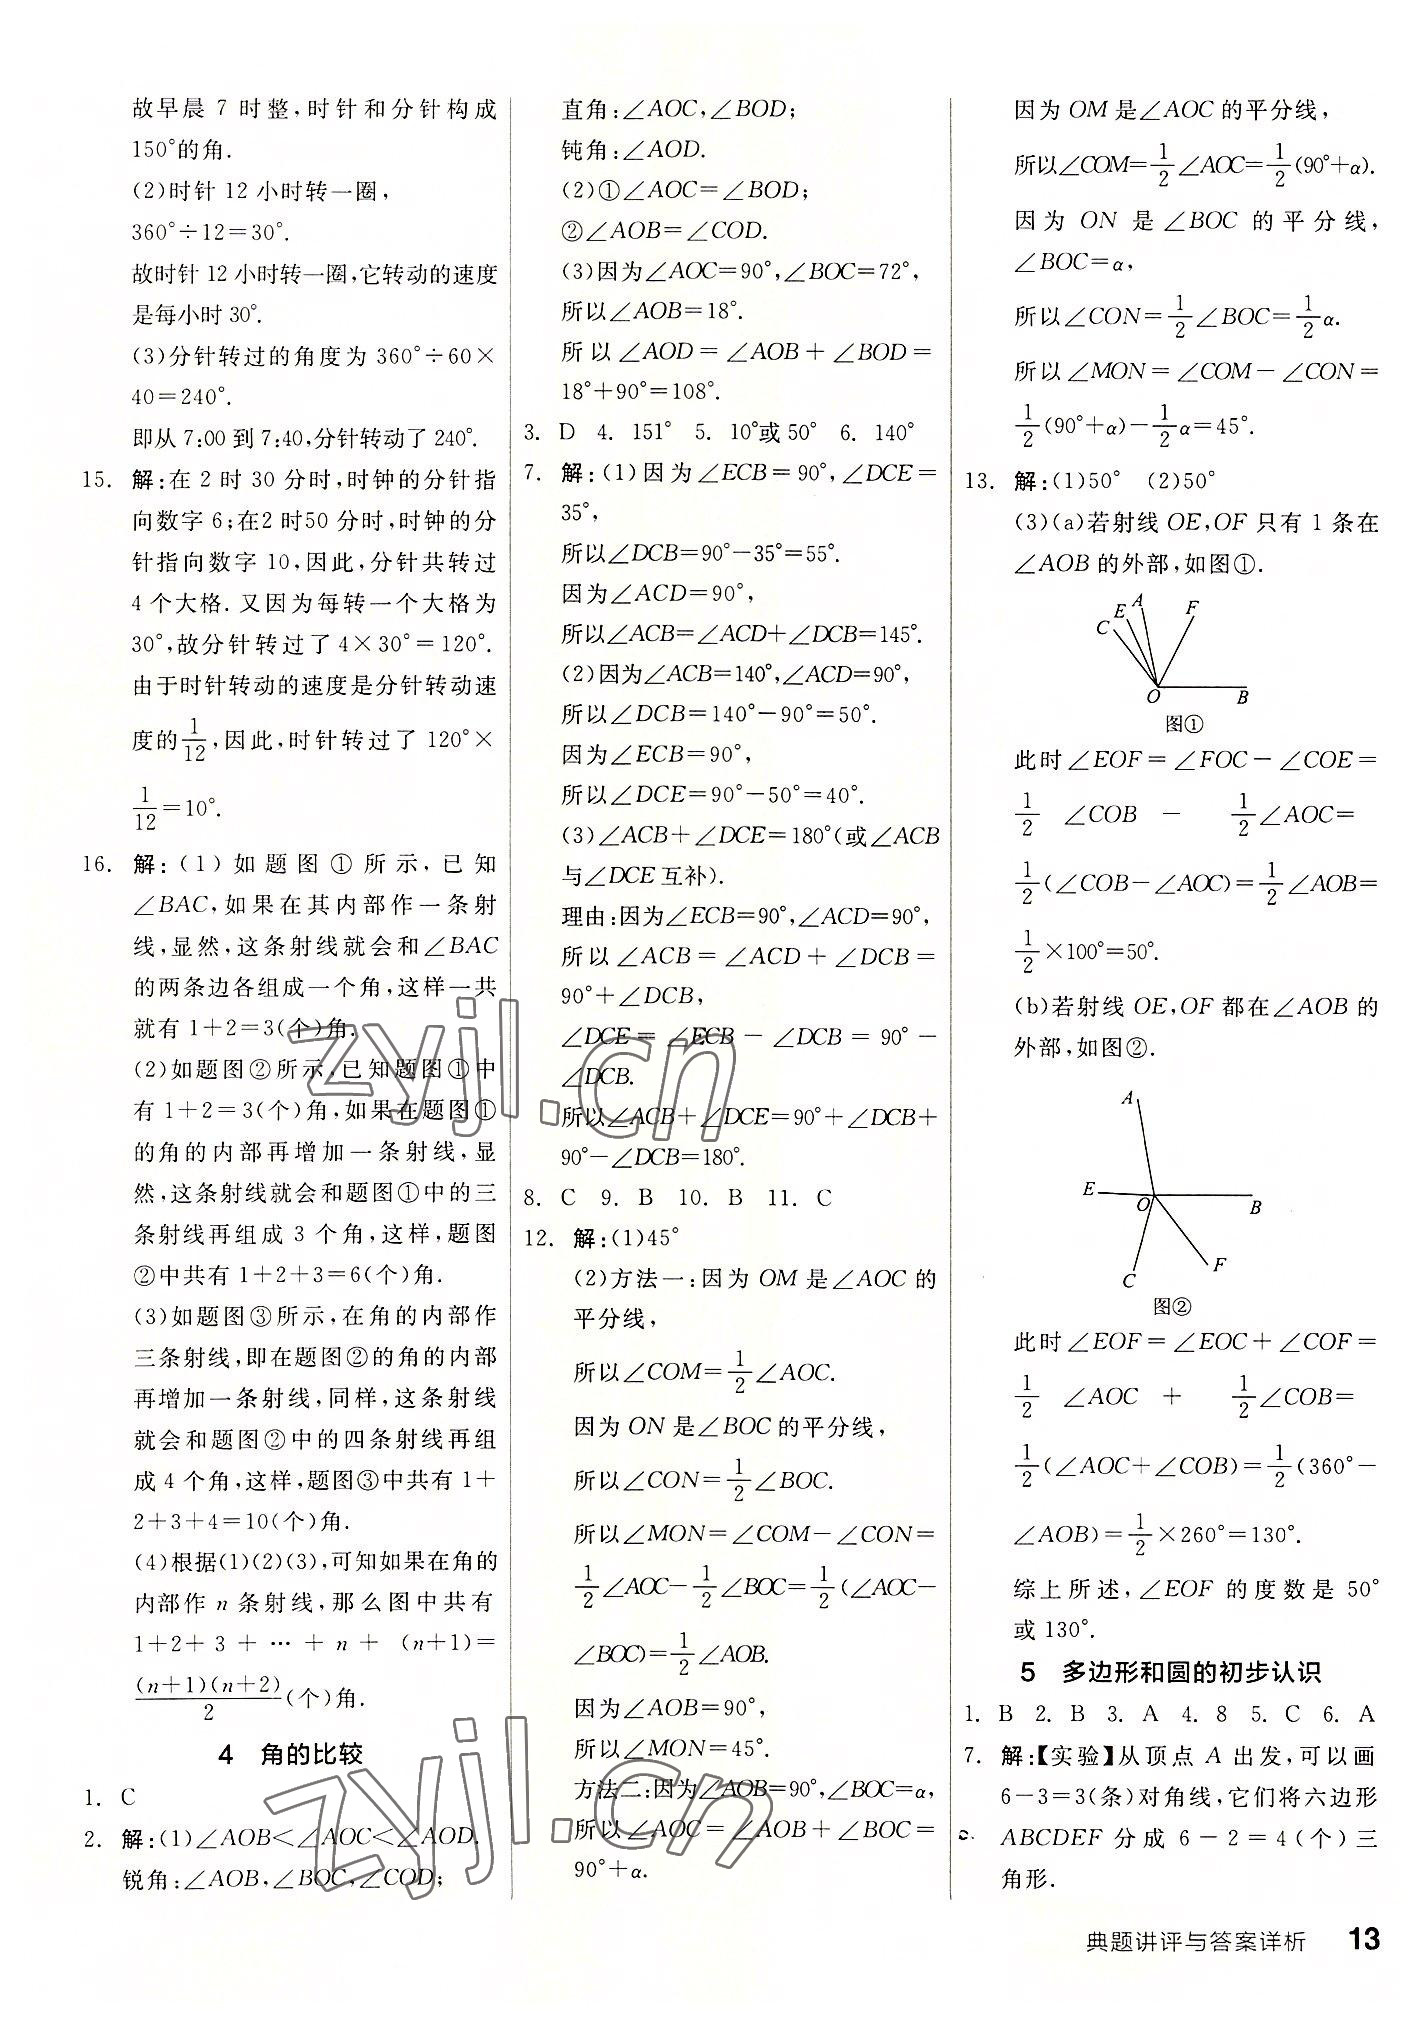 故早晨 7 时整,时针和分针构成
150°的角.
(2)时针 12 小时转一圈,
360°÷12=30°.
故时针 12 小时转一圈,它转动的速度
是每小时 30°.
(3)分针转过的角度为 360°÷60×
40=240°.
即从 7:00 到 7:40,分针转动了 240°.
15. 解:在 2 时 30 分时,时钟的分针指
向数字 6;在2 时50 分时,时钟的分
针指向数字 10,因此,分针共转过
4 个大格. 又因为每转一个大格为
30°,故分针转过了 4×30°=120°.
由于时针转动的速度是分针转动速
度的1/12,因此,时针转过了 120°×
1/12=10°.
16. 解:(1)如题图①所示,已知
∠BAC,如果在其内部作一条射
线,显然,这条射线就会和∠BAC
的两条边各组成一个角,这样一共
就有 1+2=3(个)角.
(2)如题图②所示,已知题图①中
有 1+2=3(个)角,如果在题图①
的角的内部再增加一条射线,显
然,这条射线就会和题图①中的三
条射线再组成 3 个角,这样,题图
②中共有 1+2+3=6(个)角.
(3)如题图③所示,在角的内部作
三条射线,即在题图②的角的内部
再增加一条射线,同样,这条射线
就会和题图②中的四条射线再组
成 4 个角,这样,题图③中共有 1+
2+3+4=10(个)角.
(4)根据(1)(2)(3),可知如果在角的
内部作 n 条射线,那么图中共有
1+2+3+…+n+(n+1)=
(n+1)(n+2)/2(个)角.
4 角的比较
1. C
2. 解:(1)∠AOB<∠AOC<∠AOD.
锐角:∠AOB,∠BOC,∠COD;
直角:∠AOC,∠BOD;
钝角:∠AOD.
(2)①∠AOC=∠BOD;
②∠AOB=∠COD.
(3)因为∠AOC=90°,∠BOC=72°,
所以∠AOB=18°.
所以∠AOD=∠AOB+∠BOD=
18°+90°=108°.
3. D 4. 151° 5. 10°或50° 6. 140°
7. 解:(1)因为∠ECB=90°,∠DCE=
35°,
所以∠DCB=90°-35°=55°.
因为∠ACD=90°,
所以∠ACB=∠ACD+∠DCB=145°.
(2)因为∠ACB=140°,∠ACD=90°,
所以∠DCB=140°-90°=50°.
因为∠ECB=90°,
所以∠DCE=90°-50°=40°.
(3)∠ACB+∠DCE=180°(或∠ACB
与∠DCE互补).
理由:因为∠ECB=90°,∠ACD=90°,
所以∠ACB=∠ACD+∠DCB=
90°+∠DCB,
∠DCE=∠ECB-∠DCB=90°-
∠DCB.
所以∠ACB+∠DCE=90°+∠DCB+
90°-∠DCB=180°.
8. C 9. B 10. B 11. C
12. 解:(1)45°
(2)方法一:因为 OM 是∠AOC的
平分线,
所以∠COM=1/2∠AOC.
因为 ON 是∠BOC的平分线,
所以∠CON=1/2∠BOC.
所以∠MON=∠COM-∠CON=
1/2∠AOC-1/2∠BOC=1/2(∠AOC-
∠BOC)=1/2∠AOB.
因为∠AOB=90°,
所以∠MON=45°.
方法二:因为∠AOB=90°,∠BOC=α,
所以∠AOC=∠AOB+∠BOC=
90°+α.
因为 OM 是∠AOC的平分线,
所以∠COM=1/2∠AOC=1/2(90°+α).
因为 ON 是∠BOC 的平分线,
∠BOC=α,
所以∠CON=1/2∠BOC=1/2α.
所以∠MON=∠COM-∠CON=
1/2(90°+α)-1/2α=45°.
13. 解:(1)50° (2)50°
(3)(a)若射线 OE,OF 只有 1 条在
∠AOB的外部,如图①.
A
E
C
F
O
B
图①
此时∠EOF=∠FOC-∠COE=
1/2 ∠COB - 1/2∠AOC=
1/2(∠COB-∠AOC)=1/2∠AOB=
1/2×100°=50°.
(b)若射线 OE,OF 都在∠AOB的
外部,如图②.
A
E
O
B
C
F
图②
此时∠EOF=∠EOC+∠COF=
1/2 ∠AOC + 1/2∠COB=
1/2(∠AOC+∠COB)=1/2(360°-
∠AOB)=1/2×260°=130°.
综上所述,∠EOF 的度数是 50°
或130°.
5 多边形和圆的初步认识
1. B 2. B 3. A 4. 8 5. C 6. A
7. 解:【实验】从顶点 A 出发,可以画
6-3=3(条)对角线,它们将六边形
ABCDEF 分成 6-2=4(个)三
角形.
典题讲评与答案详析 13
zyjl.cn
zyjl.cn